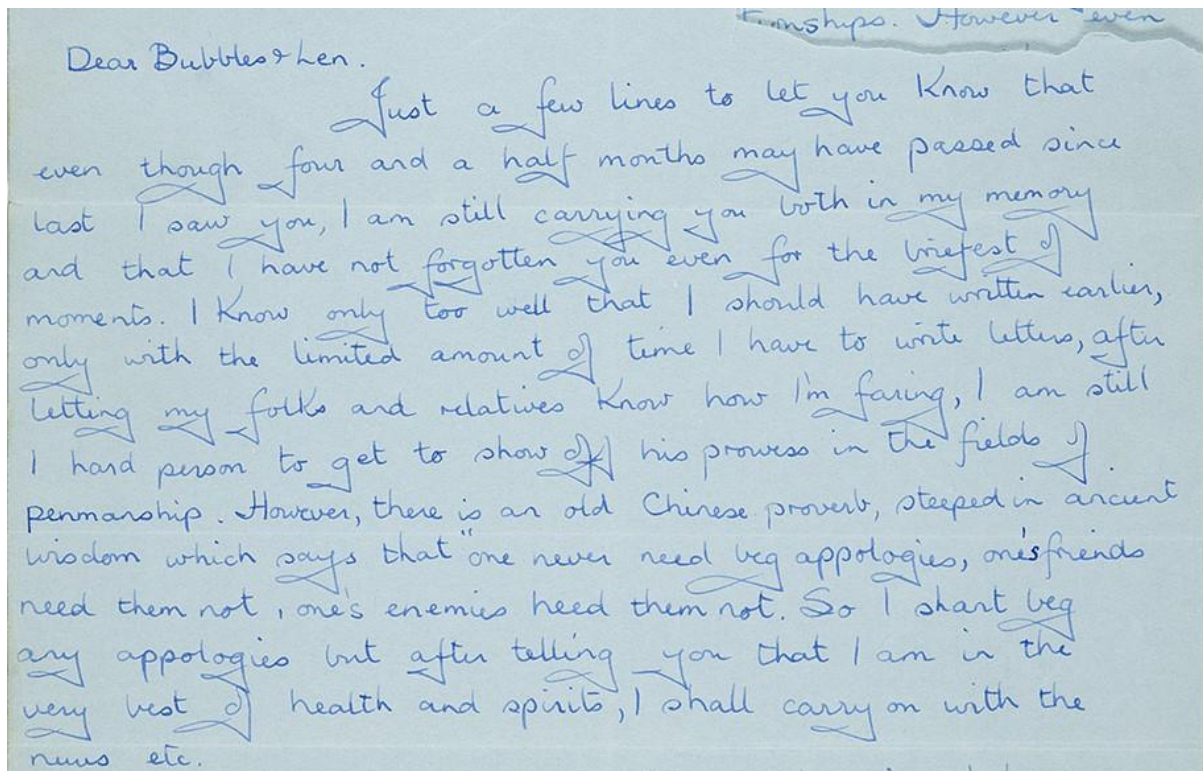 However even
Dear Bubbles & Len.
Just a few lines to let you know that
even though four and a half months may have passed since
last I saw you, I am still carrying you both in my memory
and that I have not forgotten you even for the briefest of
moments. I know only too well that I should have written earlier,
only with the limited amount of time I have to write letters, after
letting my folks and relatives know how I'm faring, I am still
I hard person to get to show off his prowess in the fields of
penmanship. However, there is an old Chinese proverb, steeped in ancient
wisdom which says that "one never need beg appologies, one's friends
need them not, one's enemies heed them not. So I shant beg
any appologies but after telling you that I am in the
very best of health and spirits, I shall carry on with the
news etc.